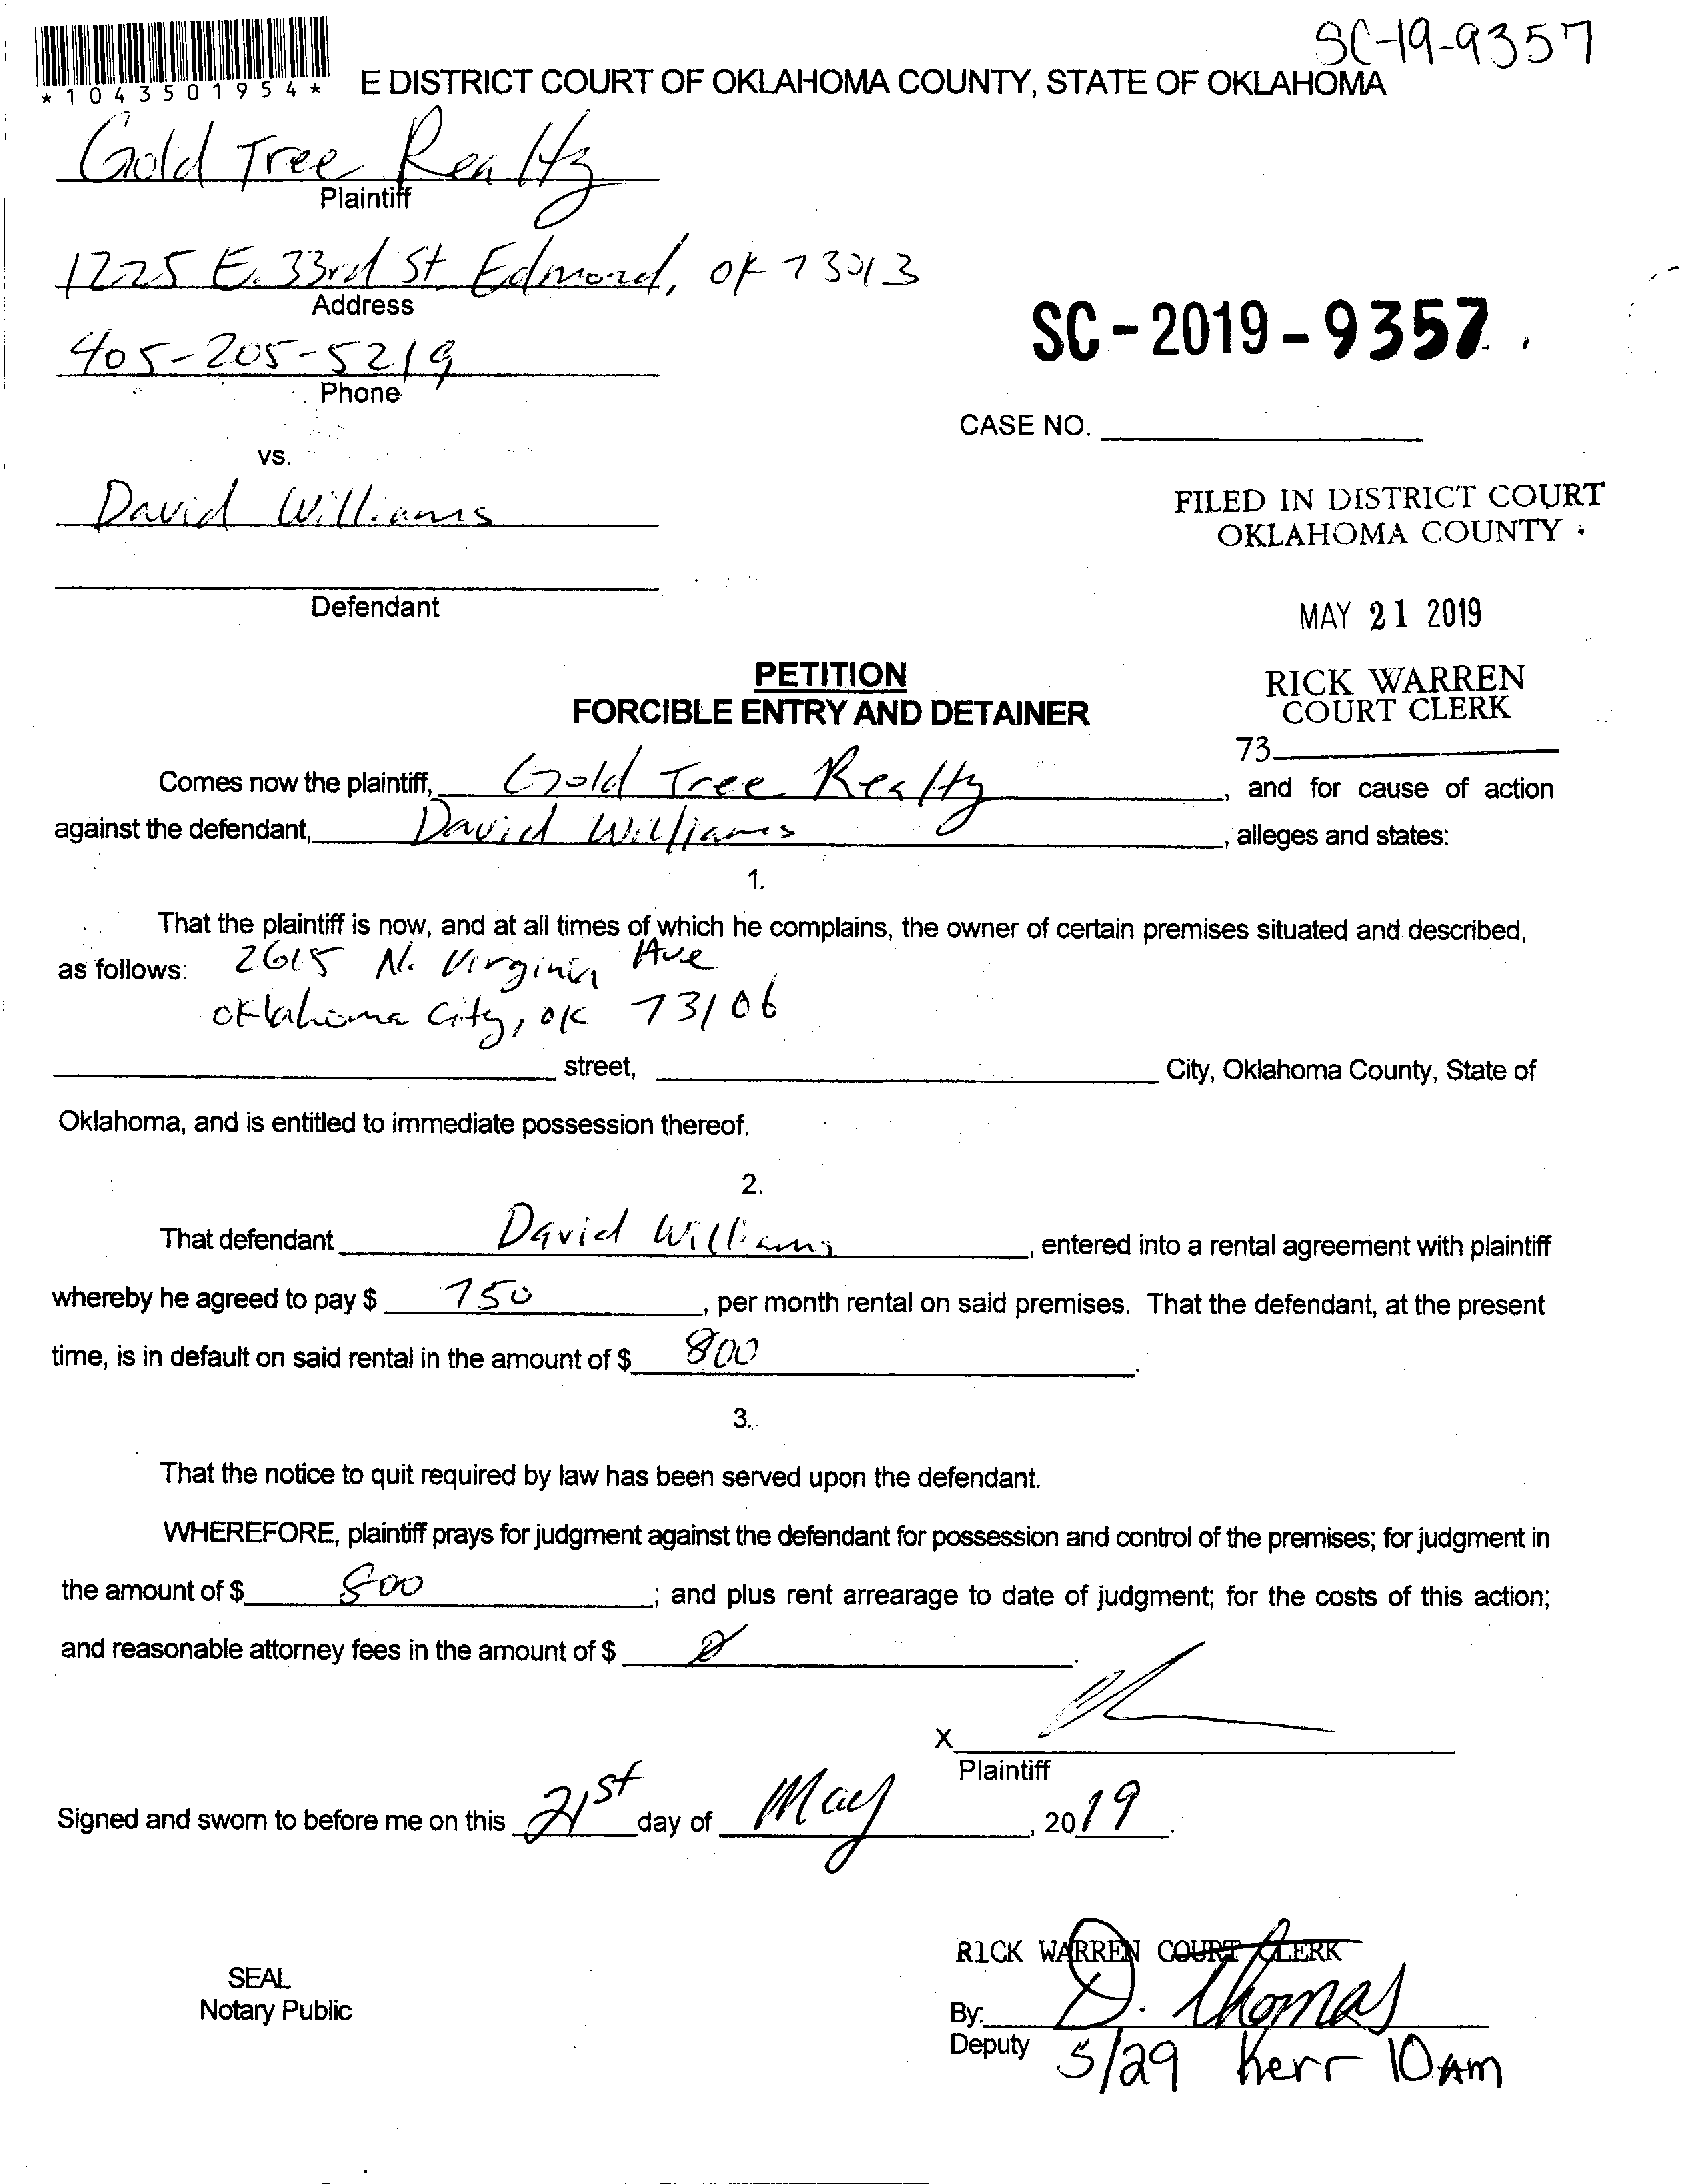 SC-19-9357
*1043501954*
E DISTRICT COURT OF OKLAHOMA COUNTY, STATE OF OKLAHOMA
Gold Tree Realty
Plaintiff
1225 E. 33rd St Edmond, OK 73013
Address
405-205-5219
Phone
SC-2019-9357
CASE NO.
vs.
David Williams
FILED IN DISTRICT COURT
OKLAHOMA COUNTY
Defendant
MAY 21 2019
PETITION
FORCIBLE ENTRY AND DETAINER
RICK WARREN
COURT CLERK
73
Comes now the plaintiff, Gold Tree Realty, and for cause of action
against the defendant, David Williams, alleges and states:
1.
That the plaintiff is now, and at all times of which he complains, the owner of certain premises situated and described,
as follows: 2615 N. Virginia Ave
Oklahoma City, OK 73106
street, City, Oklahoma County, State of
Oklahoma, and is entitled to immediate possession thereof.
2.
That defendant David Williams, entered into a rental agreement with plaintiff
whereby he agreed to pay $ 750, per month rental on said premises. That the defendant, at the present
time, is in default on said rental in the amount of $ 800.
3.
That the notice to quit required by law has been served upon the defendant.
WHEREFORE, plaintiff prays for judgment against the defendant for possession and control of the premises; for judgment in
the amount of $ 800; and plus rent arrearage to date of judgment; for the costs of this action;
and reasonable attorney fees in the amount of $ 0.
X
Plaintiff
Signed and sworn to before me on this 21st day of May, 2019.
RICK WARREN COURT CLERK
SEAL
Notary Public
By: D. Thomas
Deputy
5/29 Kerr 10AM